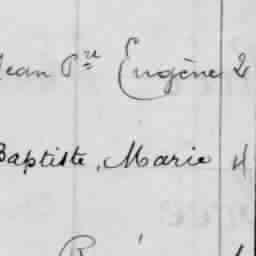 Jean Pre Eugène 2
Baptiste, Marie 4